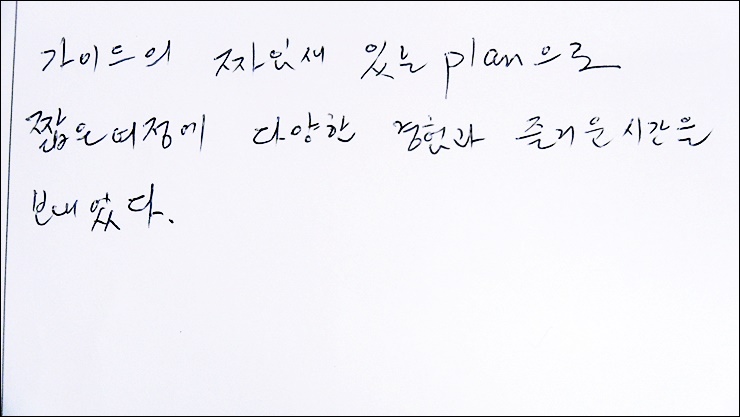 가이드의 짜임새 있는 plan으로
짧은 여정에 다양한 경험과 즐거운 시간을
보내었다.